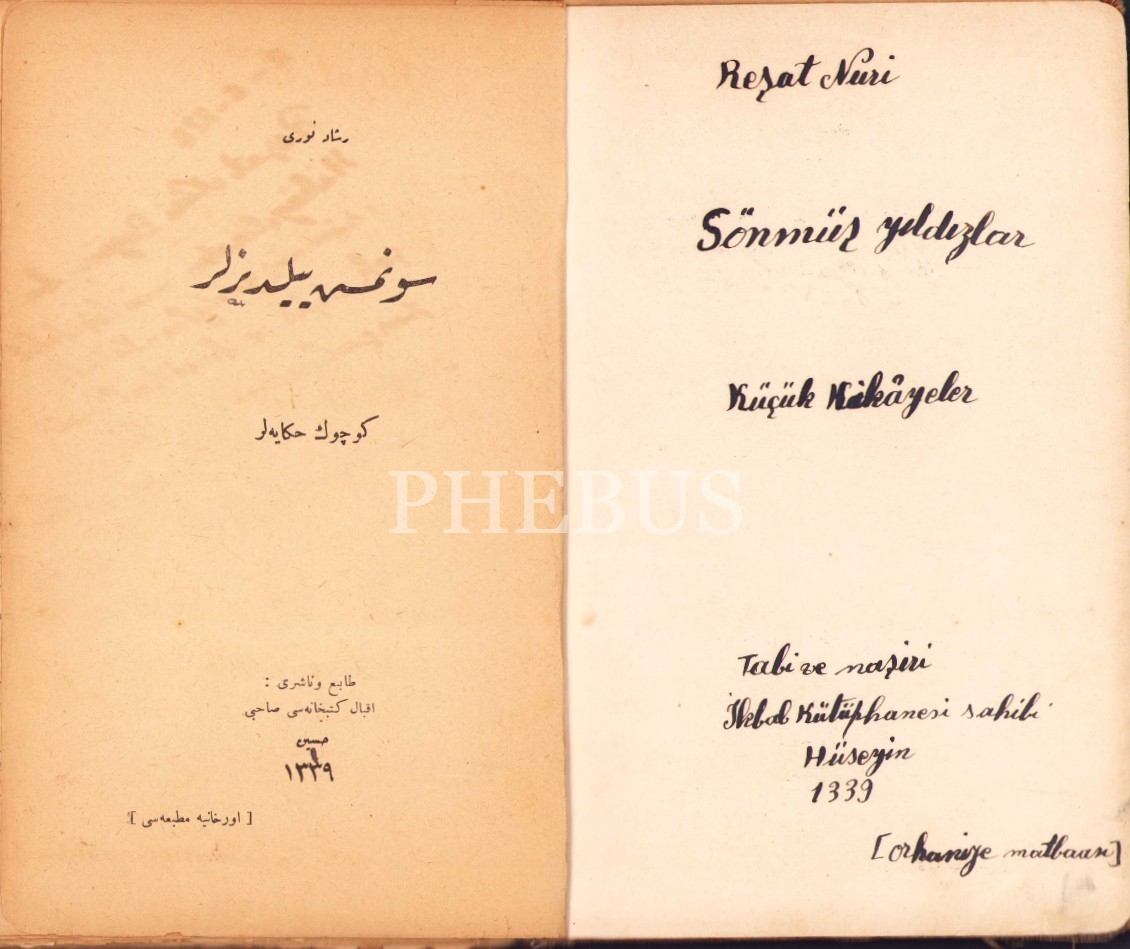 رشاد نوری
سونمش ییلدیزلر
كوچوك حكایه‌لر
طابع وناشری :
اقبال كتبخانه‌سی صاحبی
حسین
١٣٣٩
[ اورخانیه مطبعه‌سی ]
Reşat Nuri
Sönmüş yıldızlar
Küçük Hikâyeler
PHEBUS
Tabi ve naşiri
İkbal Kütüphanesi sahibi
Hüseyin
1339
[Orhaniye matbaası]